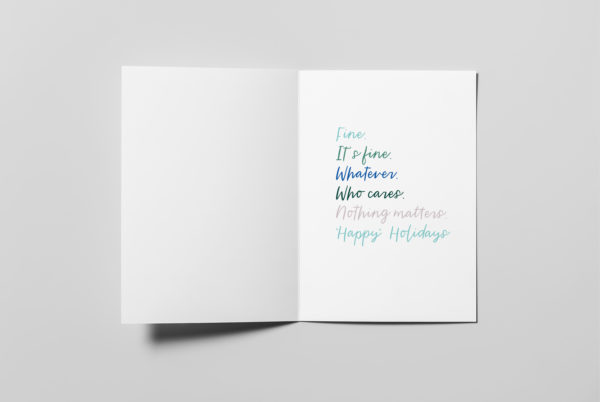 Fine.
It's fine.
Whatever.
Who cares.
Nothing matters.
'Happy' Holidays